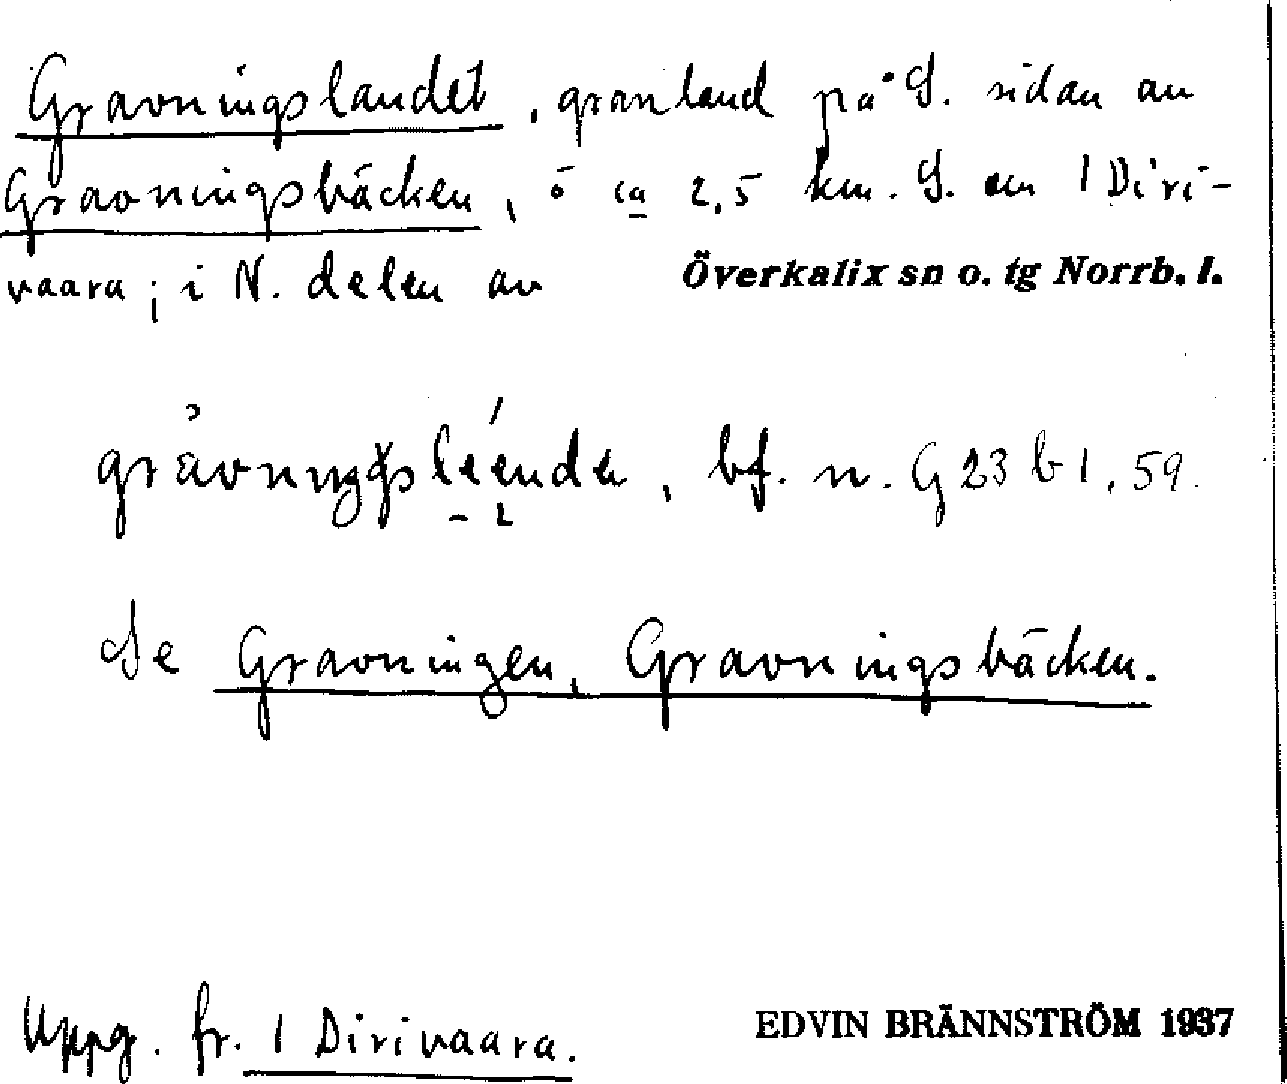 Gravningslandet, granland på S. sidan av
Gravningsbäcken, ö ca 2,5 km. S. om 1 Diri-
vaara; i N. delen av Överkalix sn o. tg Norrb. l.
bf. n. G 23 b 1, 59.
Se Gravningen, Gravningsbäcken.
Uppg. fr. 1 Dirivaara.
EDVIN BRÄNNSTRÖM 1937